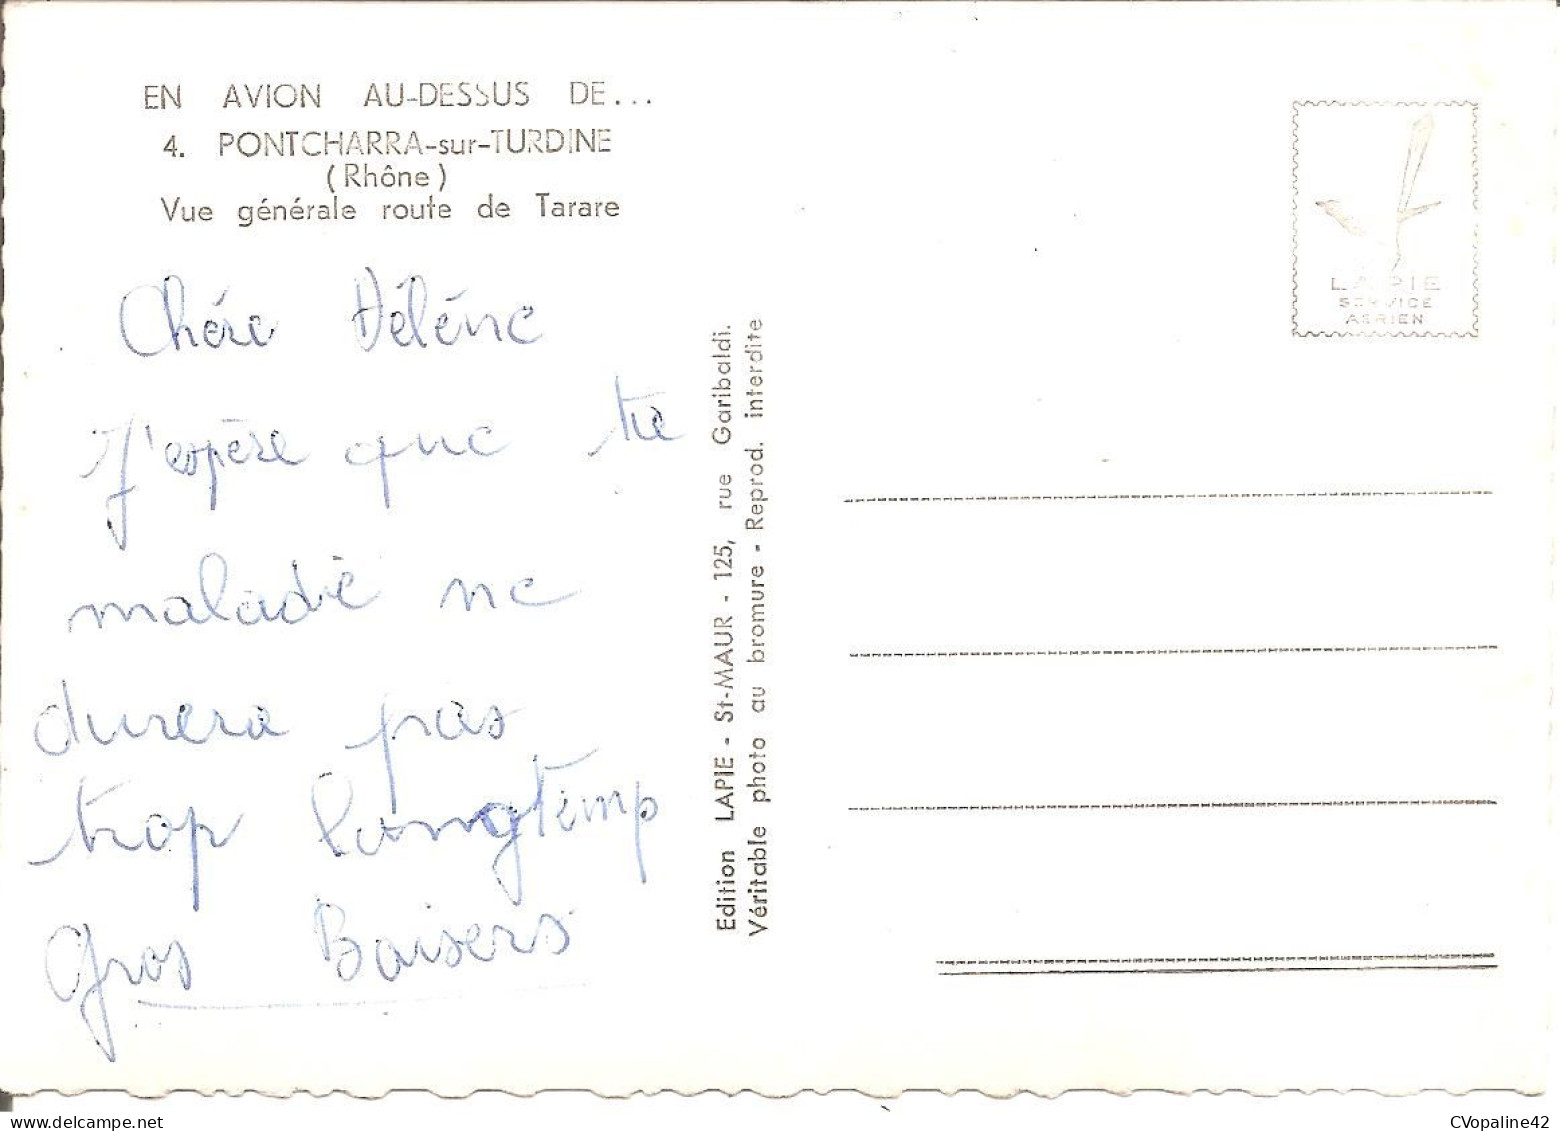 EN AVION AU-DESSUS DE...
4. PONTCHARRA-sur-TURDINE
(Rhône)
Vue générale route de Tarare
Chére Hélénc
J'espère que ta
maladie ne
durera pas
trop longtemp
Gros Baisers
Edition LAPIE - St-MAUR - 125, rue Garibaldi.
Véritable photo au bromure - Reprod. interdite
LAPIE
SERVICE
AERIEN
CVopaline42